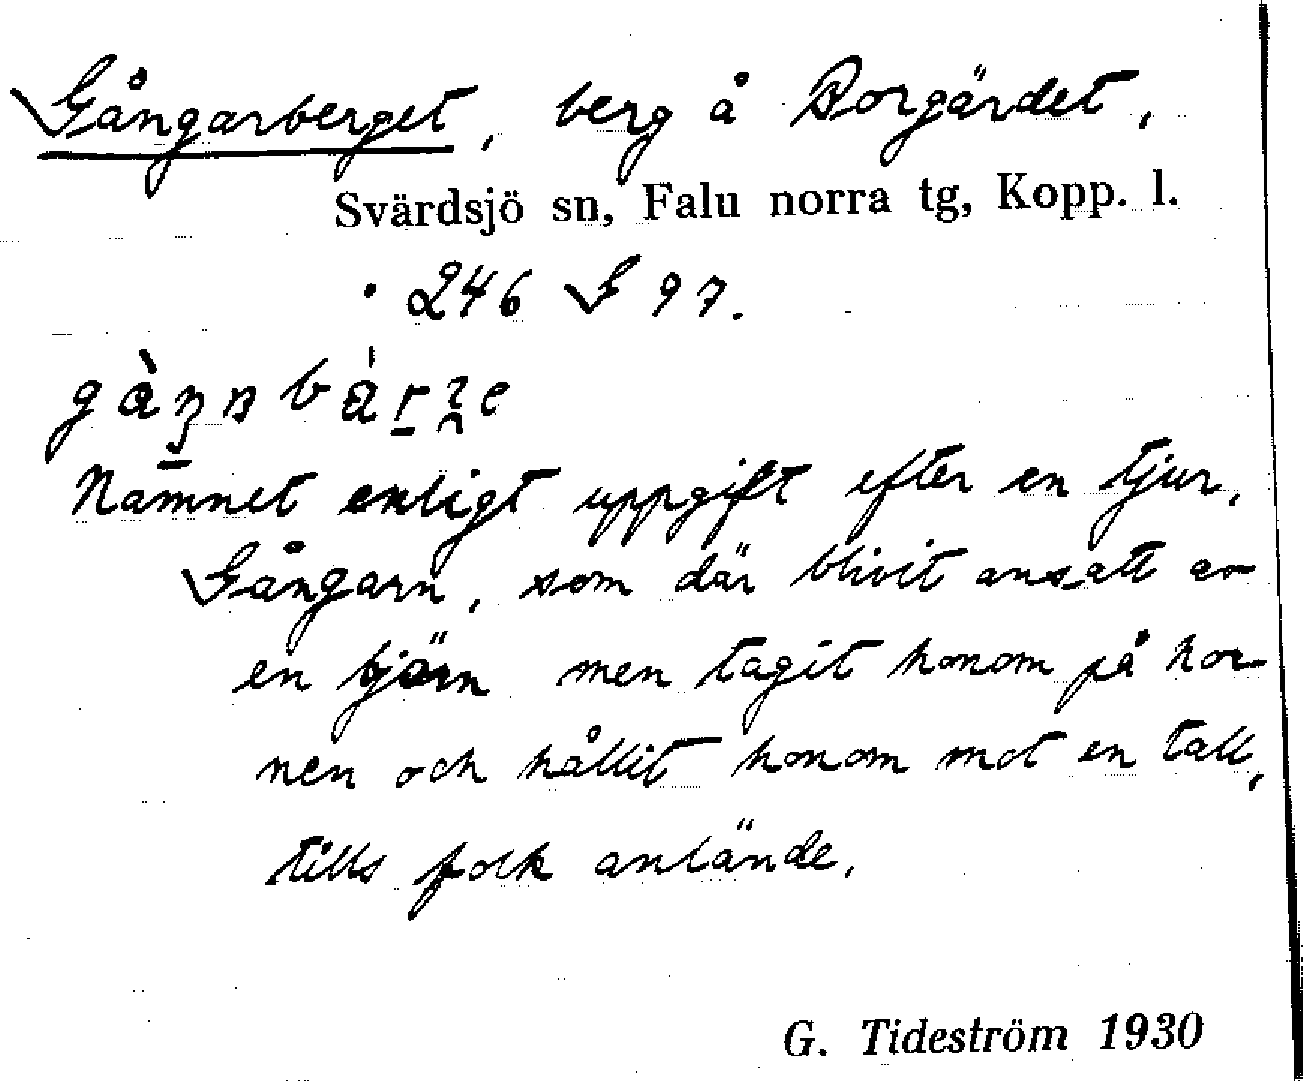 Gångarberget, berg å Borgärdet,
Svärdsjö sn, Falu norra tg, Kopp. l.
246 G 97.
Namnet enligt uppgift efter en tjur,
Gångarn, som där blivit ansatt av
en björn men tagit honom på hor-
nen och hållit honom mot en tall,
tills folk anlände.
G. Tideström 1930